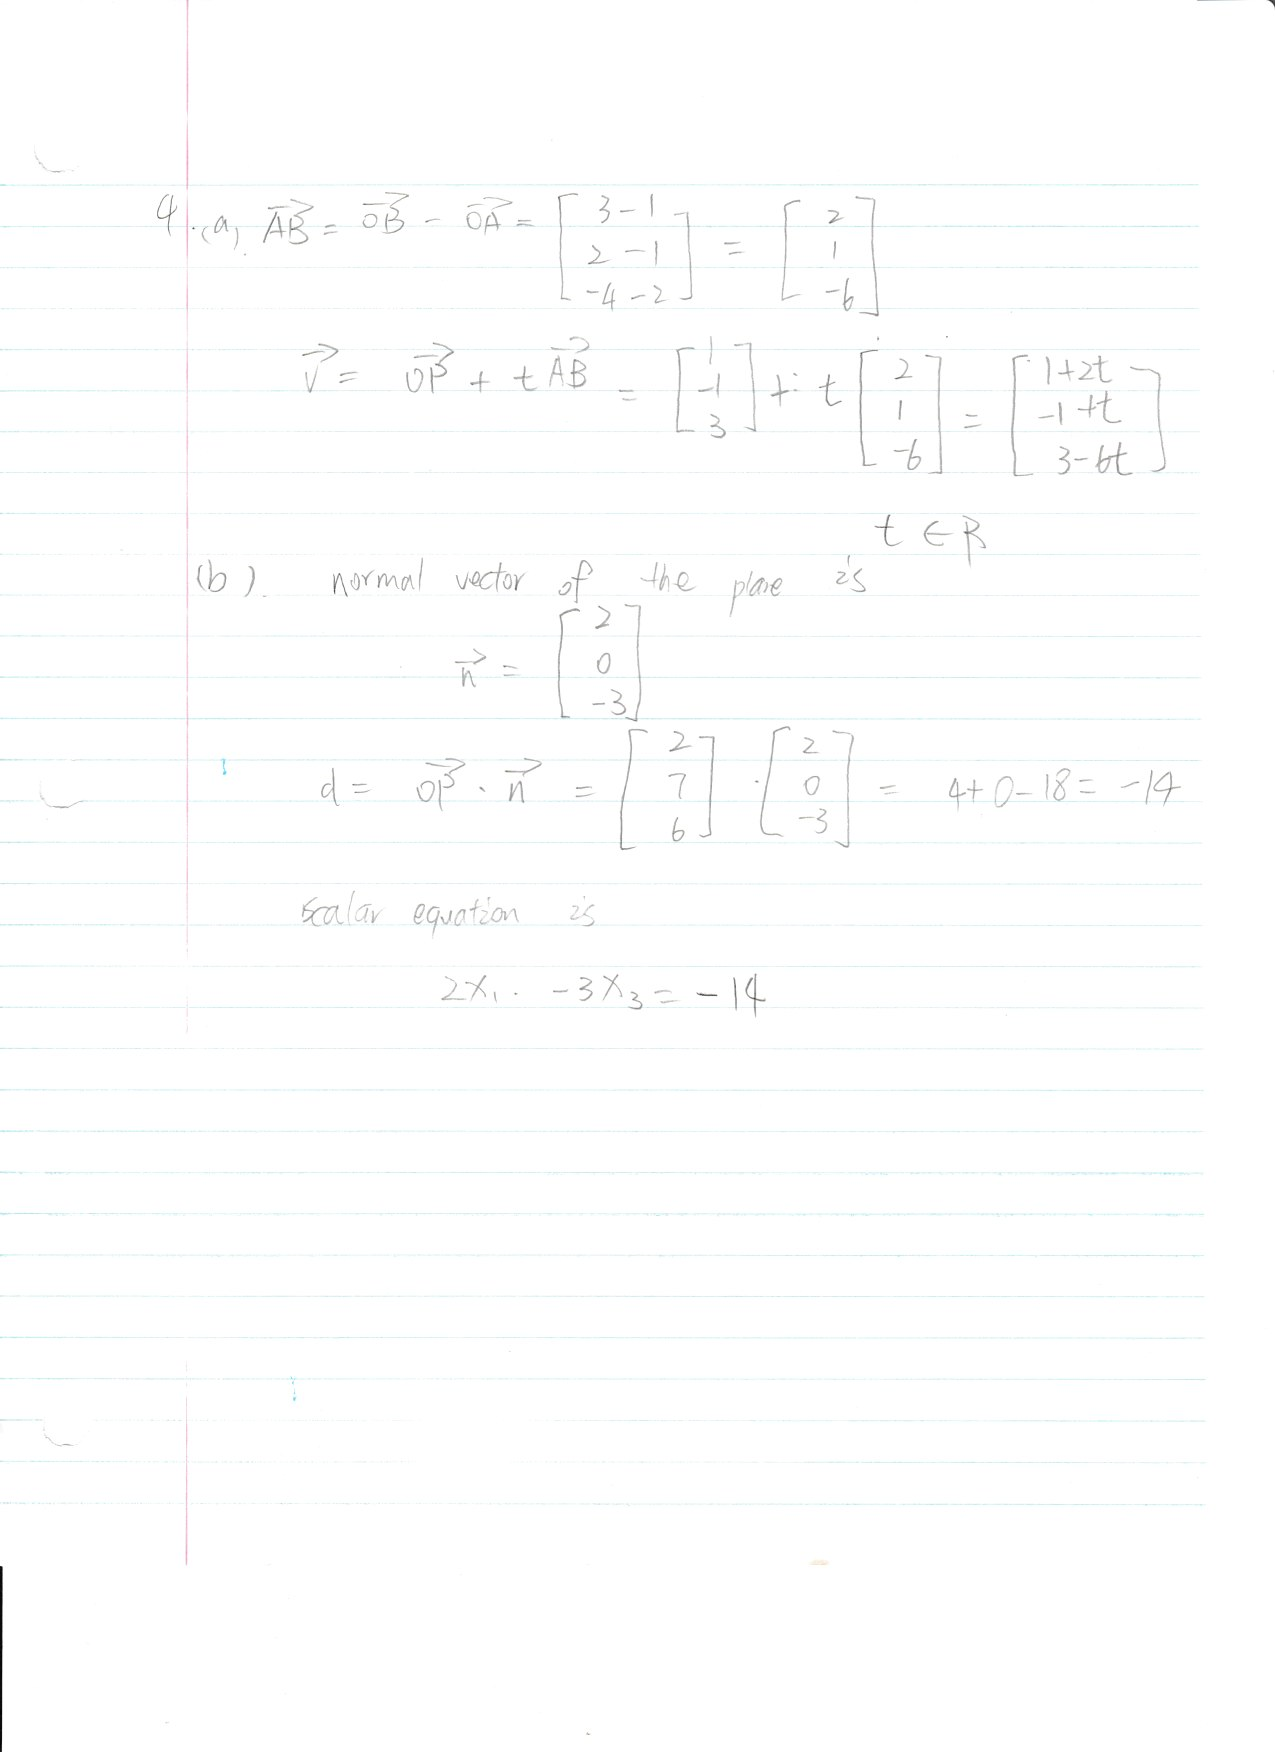 4.(a). \vec{AB} = \vec{OB} - \vec{OA} = \begin{bmatrix} 3-1 \\ 2-1 \\ -4-2 \end{bmatrix} = \begin{bmatrix} 2 \\ 1 \\ -6 \end{bmatrix}
\vec{v} = \vec{OP} + t\vec{AB} = \begin{bmatrix} 1 \\ -1 \\ 3 \end{bmatrix} + t \begin{bmatrix} 2 \\ 1 \\ -6 \end{bmatrix} = \begin{bmatrix} 1+2t \\ -1+t \\ 3-6t \end{bmatrix}
t ∈ R
(b). normal vector of the plane is
\vec{n} = \begin{bmatrix} 2 \\ 0 \\ -3 \end{bmatrix}
d = \vec{OP} \cdot \vec{n} = \begin{bmatrix} 2 \\ 7 \\ 6 \end{bmatrix} \cdot \begin{bmatrix} 2 \\ 0 \\ -3 \end{bmatrix} = 4+0-18 = -14
scalar equation is
2x₁ -3x₃ = -14